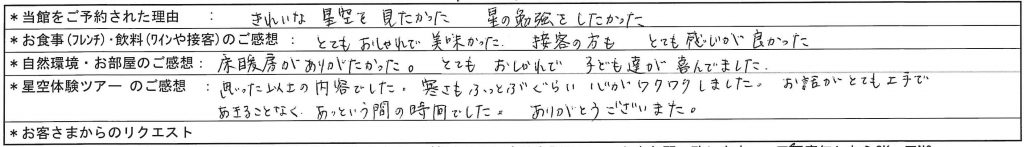 *当館をご予約された理由 : きれいな 星空を 見たかった 星の勉強をしたかった
*お食事(フレンチ)・飲料(ワインや接客)のご感想 : とても おしゃれで 美味かった 接客の方も とても 感じが 良かった
*自然環境・お部屋のご感想 : 床暖房がありがたかった。 とても おしゃれで 子ども達が 喜んでました.
*星空体験ツアー のご感想 : 思った以上の内容でした。 寒さもふっとぶぐらい 心がワクワクしました。 お話がとても上手で
あきることなく あっという間の時間でした。 ありがとうございまた。
*お客さまからのリクエスト